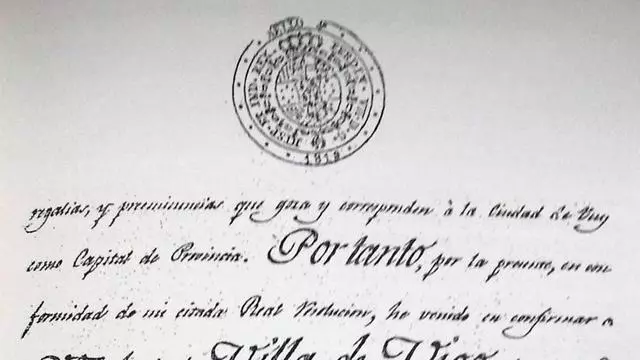 1819
regalias, y preeminencias que goza y corresponden à la Ciudad de Tuy
como Capital de Provincia. Portanto, por la presente, en con
formidad de mi citada Real resolucion, he venido en confirmar a
Villa de Vigo